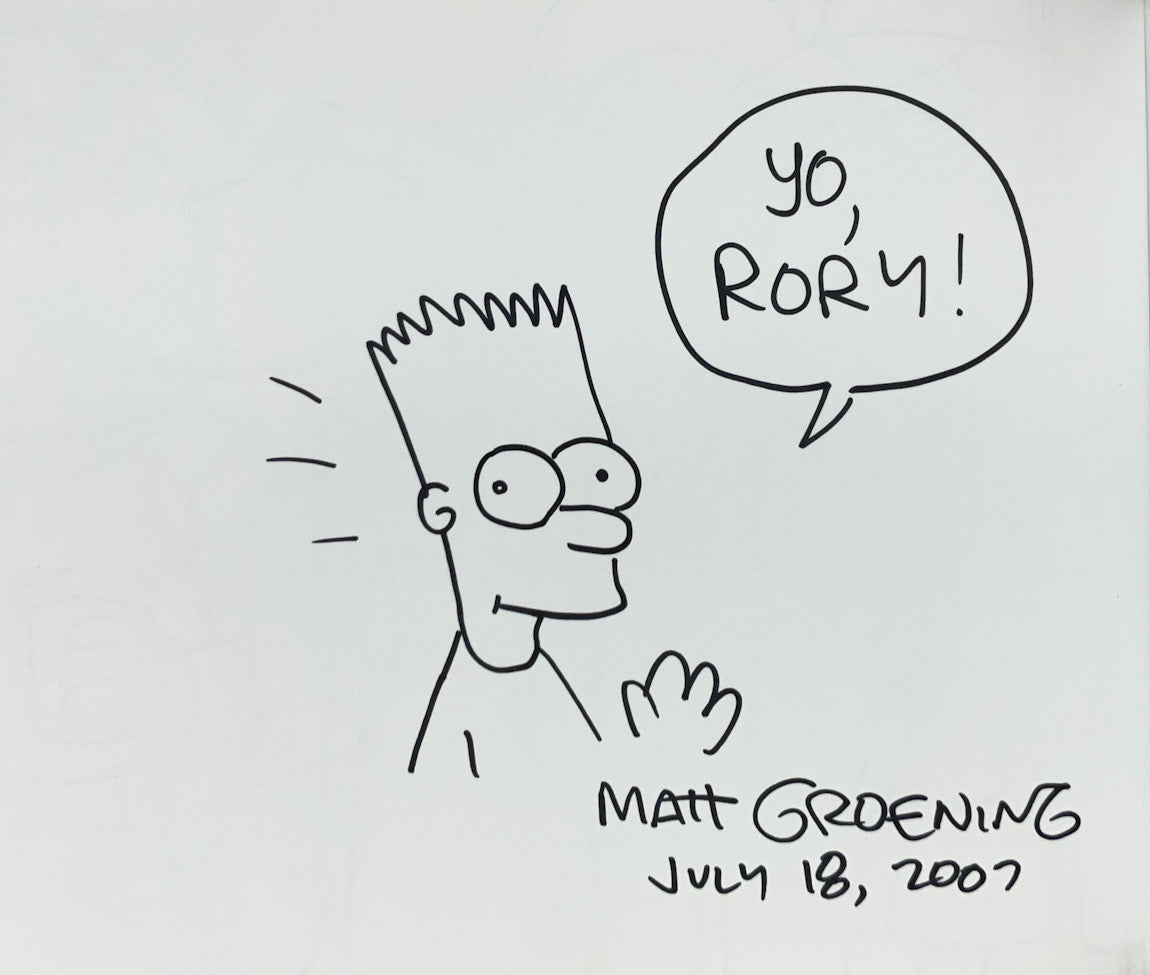 YO,
RORY!
MATT GROENING
JULY 18, 2007